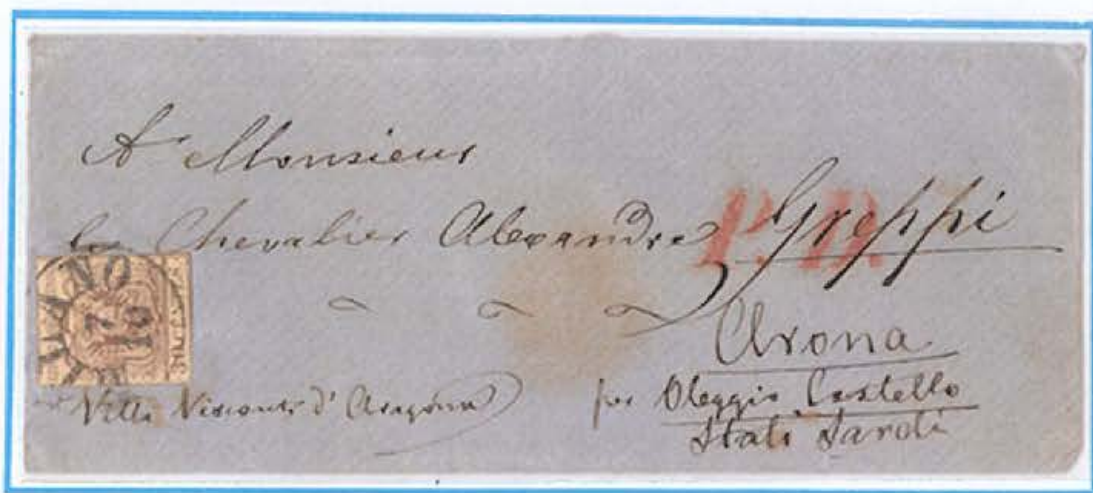 A Monsieur
le Chevalier Alexandre Greppi
P.D.
MILANO
17
10
Arona
Villa Visconti d'Aragona
per Oleggio Castello
Stati Sardi